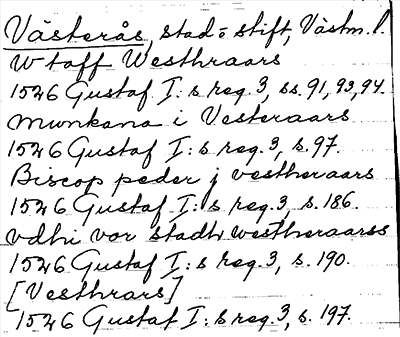 Västerås, stad o stift, Västm. l.
w taff Westhraars
1526 Gustaf I:s reg. 3, ss. 91, 93, 94.
Mwnkana i Vesteraars
1526 Gustaf I:s reg. 3, s. 97.
Biscop peder j vestheraars
1526 Gustaf I:s reg. 3, s. 186.
vdhi vor stadh westheraarss
1526 Gustaf I:s reg. 3, s. 190.
[Vesthrars]
1526 Gustaf I:s reg. 3, s. 197.